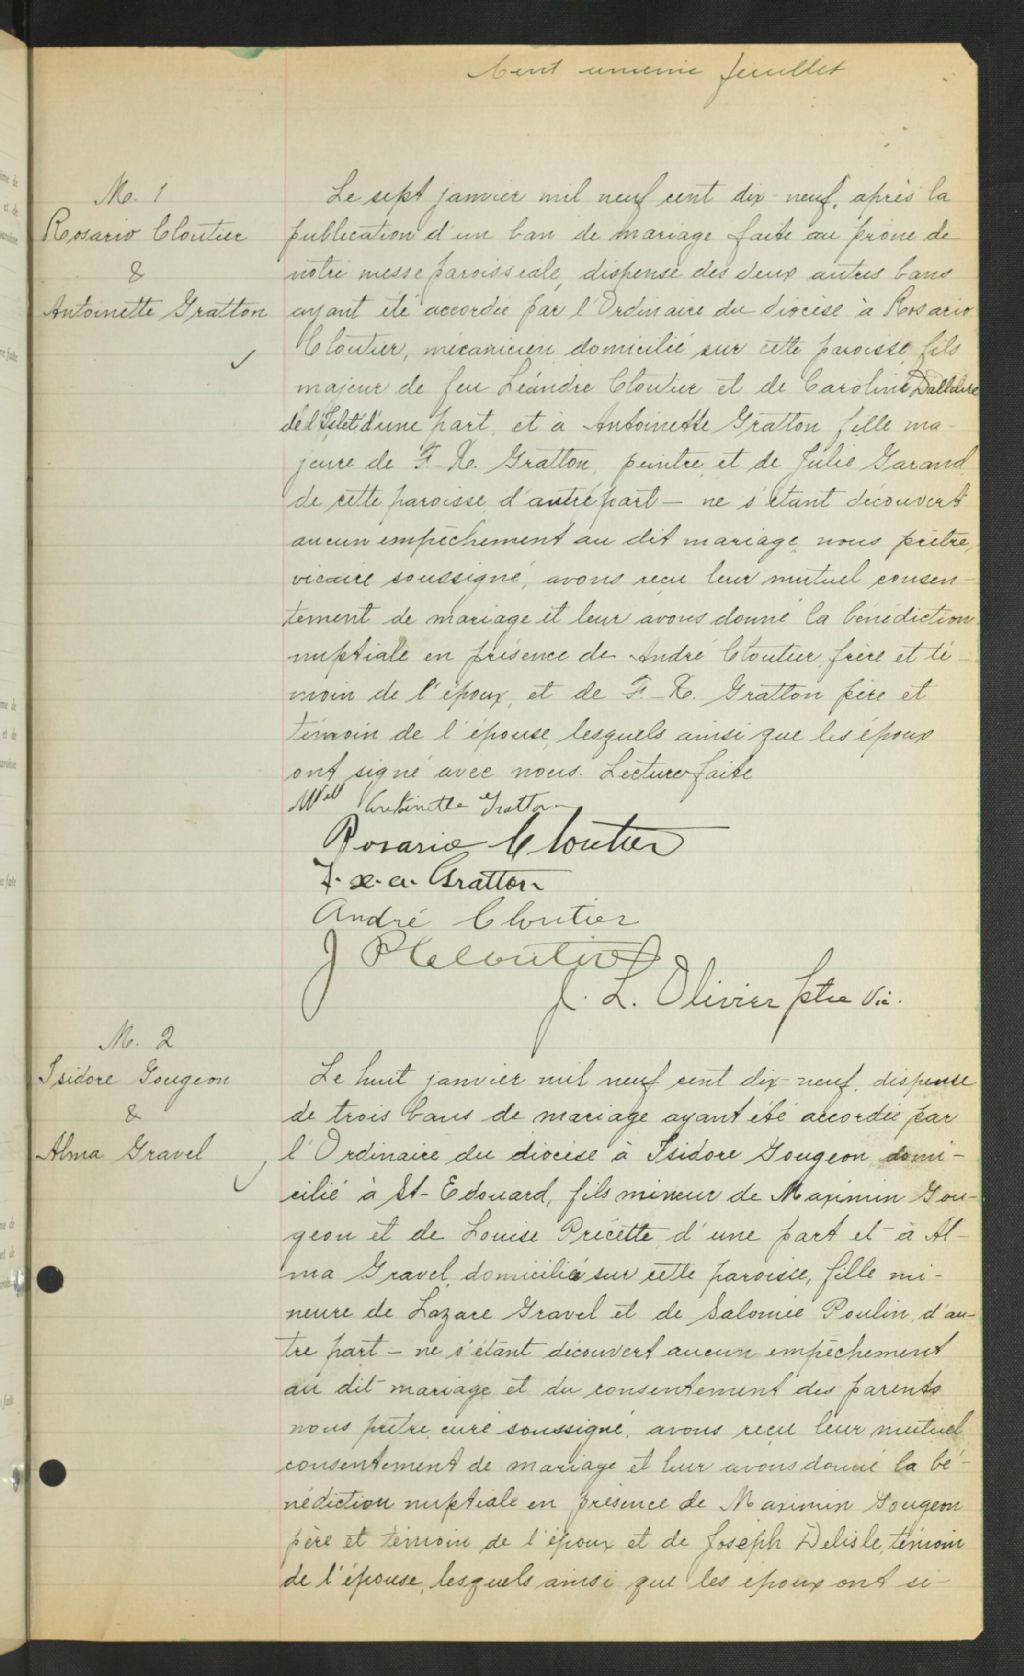 Cent unième feuillet
M. 1
Rosario Cloutier
&
Antoinette Gratton
Le sept janvier mil neuf cent dix-neuf, après la
publication d'un ban de mariage faite au prône de
notre messe paroissiale, dispense des deux autres bans
ayant été accordée par l'Ordinaire du diocèse à Rosario
Cloutier, mécanicien domicilié sur cette paroisse, fils
majeur de feu Léandre Cloutier et de Caroline
de l'Islet d'une part, et à Antoinette Gratton fille ma-
jeure de F. X. Gratton, peintre, et de Julie Garand
de cette paroisse d'autre part — ne s'étant découvert
aucun empêchement au dit mariage, nous prêtre,
vicaire soussigné, avons reçu leur mutuel consen-
tement de mariage et leur avons donné la bénédiction
nuptiale en présence de André Cloutier, frère et té-
moin de l'époux, et de F. X. Gratton père et
témoin de l'épouse, lesquels ainsi que les époux
ont signé avec nous. Lecture faite
Mell Antoinette Gratton
Rosario Cloutier
F. x. a. Gratton
André Cloutier
J P Cloutier
J. L. Olivier ptre Vic.
M. 2
Isidore Gougeon
&
Alma Gravel
Le huit janvier mil neuf cent dix-neuf, dispense
de trois bans de mariage ayant été accordée par
l'Ordinaire du diocèse à Isidore Gougeon domi-
cilié à St-Edouard, fils mineur de Maximin Gou-
geon et de Louise Précette d'une part et à Al-
ma Gravel, domiciliée sur cette paroisse, fille mi-
neure de Lazare Gravel et de Salomée Poulin, d'au-
tre part — ne s'étant découvert aucun empêchement
au dit mariage et du consentement des parents
nous prêtre, curé soussigné, avons reçu leur mutuel
consentement de mariage et leur avons donné la bé-
nédiction nuptiale en présence de Maximin Gougeon
père et témoin de l'époux et de Joseph Delisle, témoin
de l'épouse, lesquels ainsi que les époux ont si-